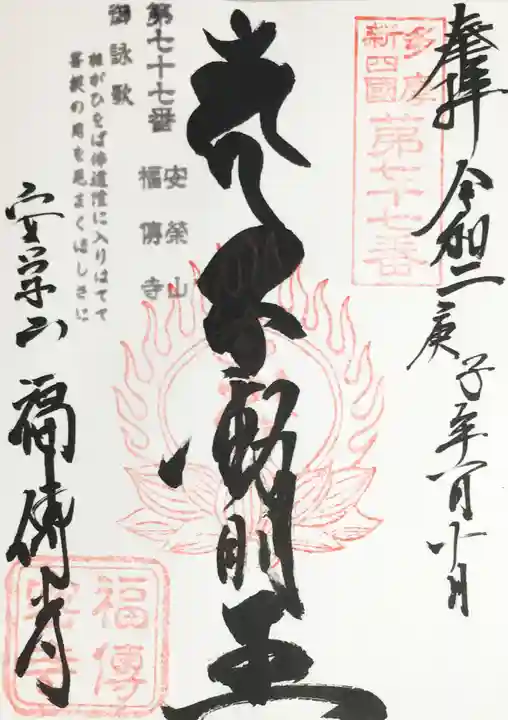 奉拝
令和二庚子年
多摩
新四國
第七十七番
不動明王
第七十七番
安榮山
福傳寺
御詠歌
誰がひをば佛道陸に入りはてて
菩提の月を見まくほしさに
安栄山
福傳寺
福傳
寺